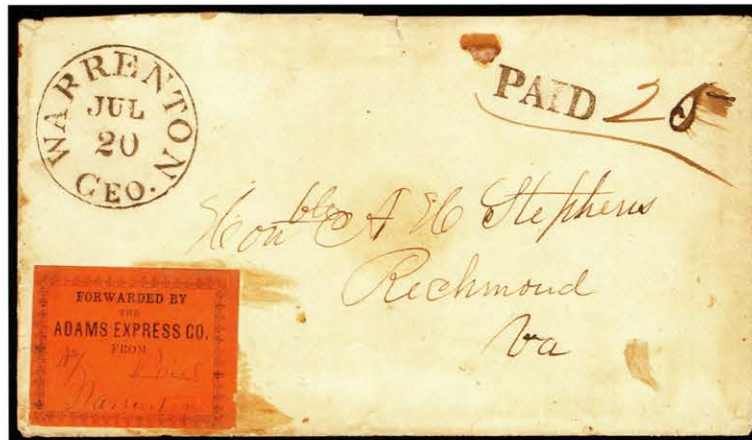 WARRENTON
JUL
20
GEO.
PAID 25
Honble A H Stephens
Richmond
Va
FORWARDED BY
THE
ADAMS EXPRESS CO.
FROM